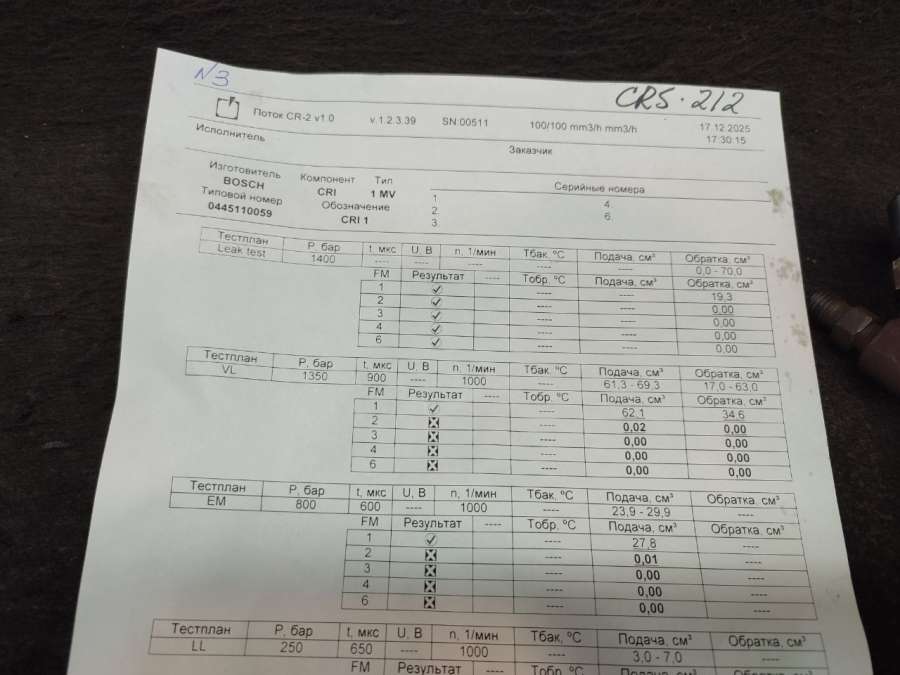 N3
CRS-212
Поток CR-2 v1.0 v.1.2.3.39 SN:00511 100/100 mm3/h mm3/h 17.12.2025
17:30:15
Исполнитель Заказчик
Изготовитель Компонент Тип Серийные номера
BOSCH CRI 1 MV 1. 4.
Типовой номер Обозначение 2. 6.
0445110059 CRI 1 3.
Тестплан P, бар t, мкс U, В n, 1/мин Tбак. ºC Подача, см³ Обратка, см³
Leak test 1400 ---- ---- ---- ---- ---- 0,0 - 70,0
FM Результат ---- Тобр. ºC Подача, см³ Обратка, см³
1 ✓ ---- ---- 19,3
2 ✓ ---- ---- 0,00
3 ✓ ---- ---- 0,00
4 ✓ ---- ---- 0,00
6 ✓ ---- ---- 0,00
Тестплан P, бар t, мкс U, В n, 1/мин Tбак. ºC Подача, см³ Обратка, см³
VL 1350 900 ---- 1000 ---- 61,3 - 69,3 17,0 - 63,0
FM Результат ---- Тобр. ºC Подача, см³ Обратка, см³
1 ✓ ---- 62,1 34,6
2 ---- 0,02 0,00
3 ---- 0,00 0,00
4 ---- 0,00 0,00
6 ---- 0,00 0,00
Тестплан P, бар t, мкс U, В n, 1/мин Tбак. ºC Подача, см³ Обратка, см³
EM 800 600 ---- 1000 ---- 23,9 - 29,9 ----
FM Результат ---- Тобр. ºC Подача, см³ Обратка, см³
1 ✓ ---- 27,8 ----
2 ---- 0,01 ----
3 ---- 0,00 ----
4 ---- 0,00 ----
6 ---- 0,00 ----
Тестплан P, бар t, мкс U, В n, 1/мин Tбак. ºC Подача, см³ Обратка, см³
LL 250 650 ---- 1000 ---- 3,0 - 7,0 ----
FM Результат ---- Тобр. ºC Подача, см³ Обратка, см³